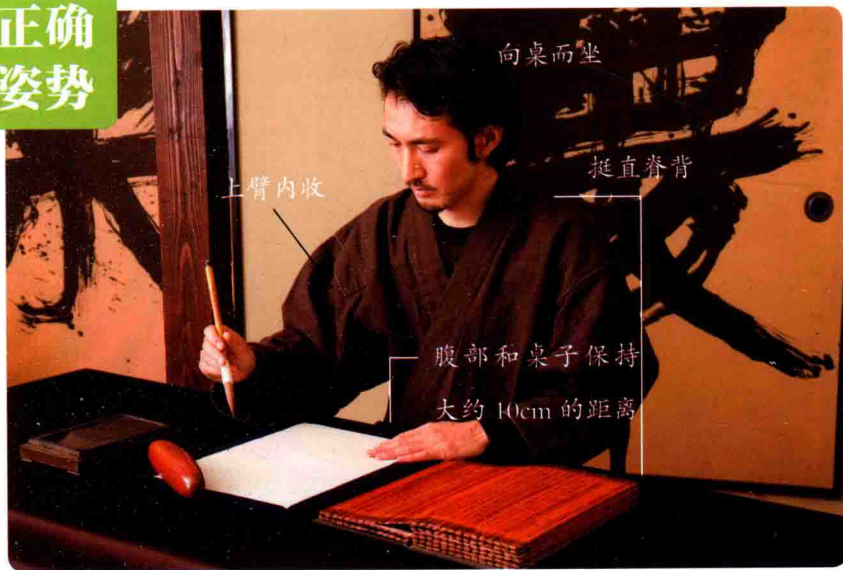 正确
姿势
向桌而坐
挺直脊背
上臂内收
腹部和桌子保持
大约 10cm 的距离